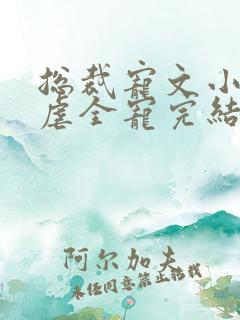 总裁宠文小
虐全宠完结
阿尔加夫
未经同意禁止转载